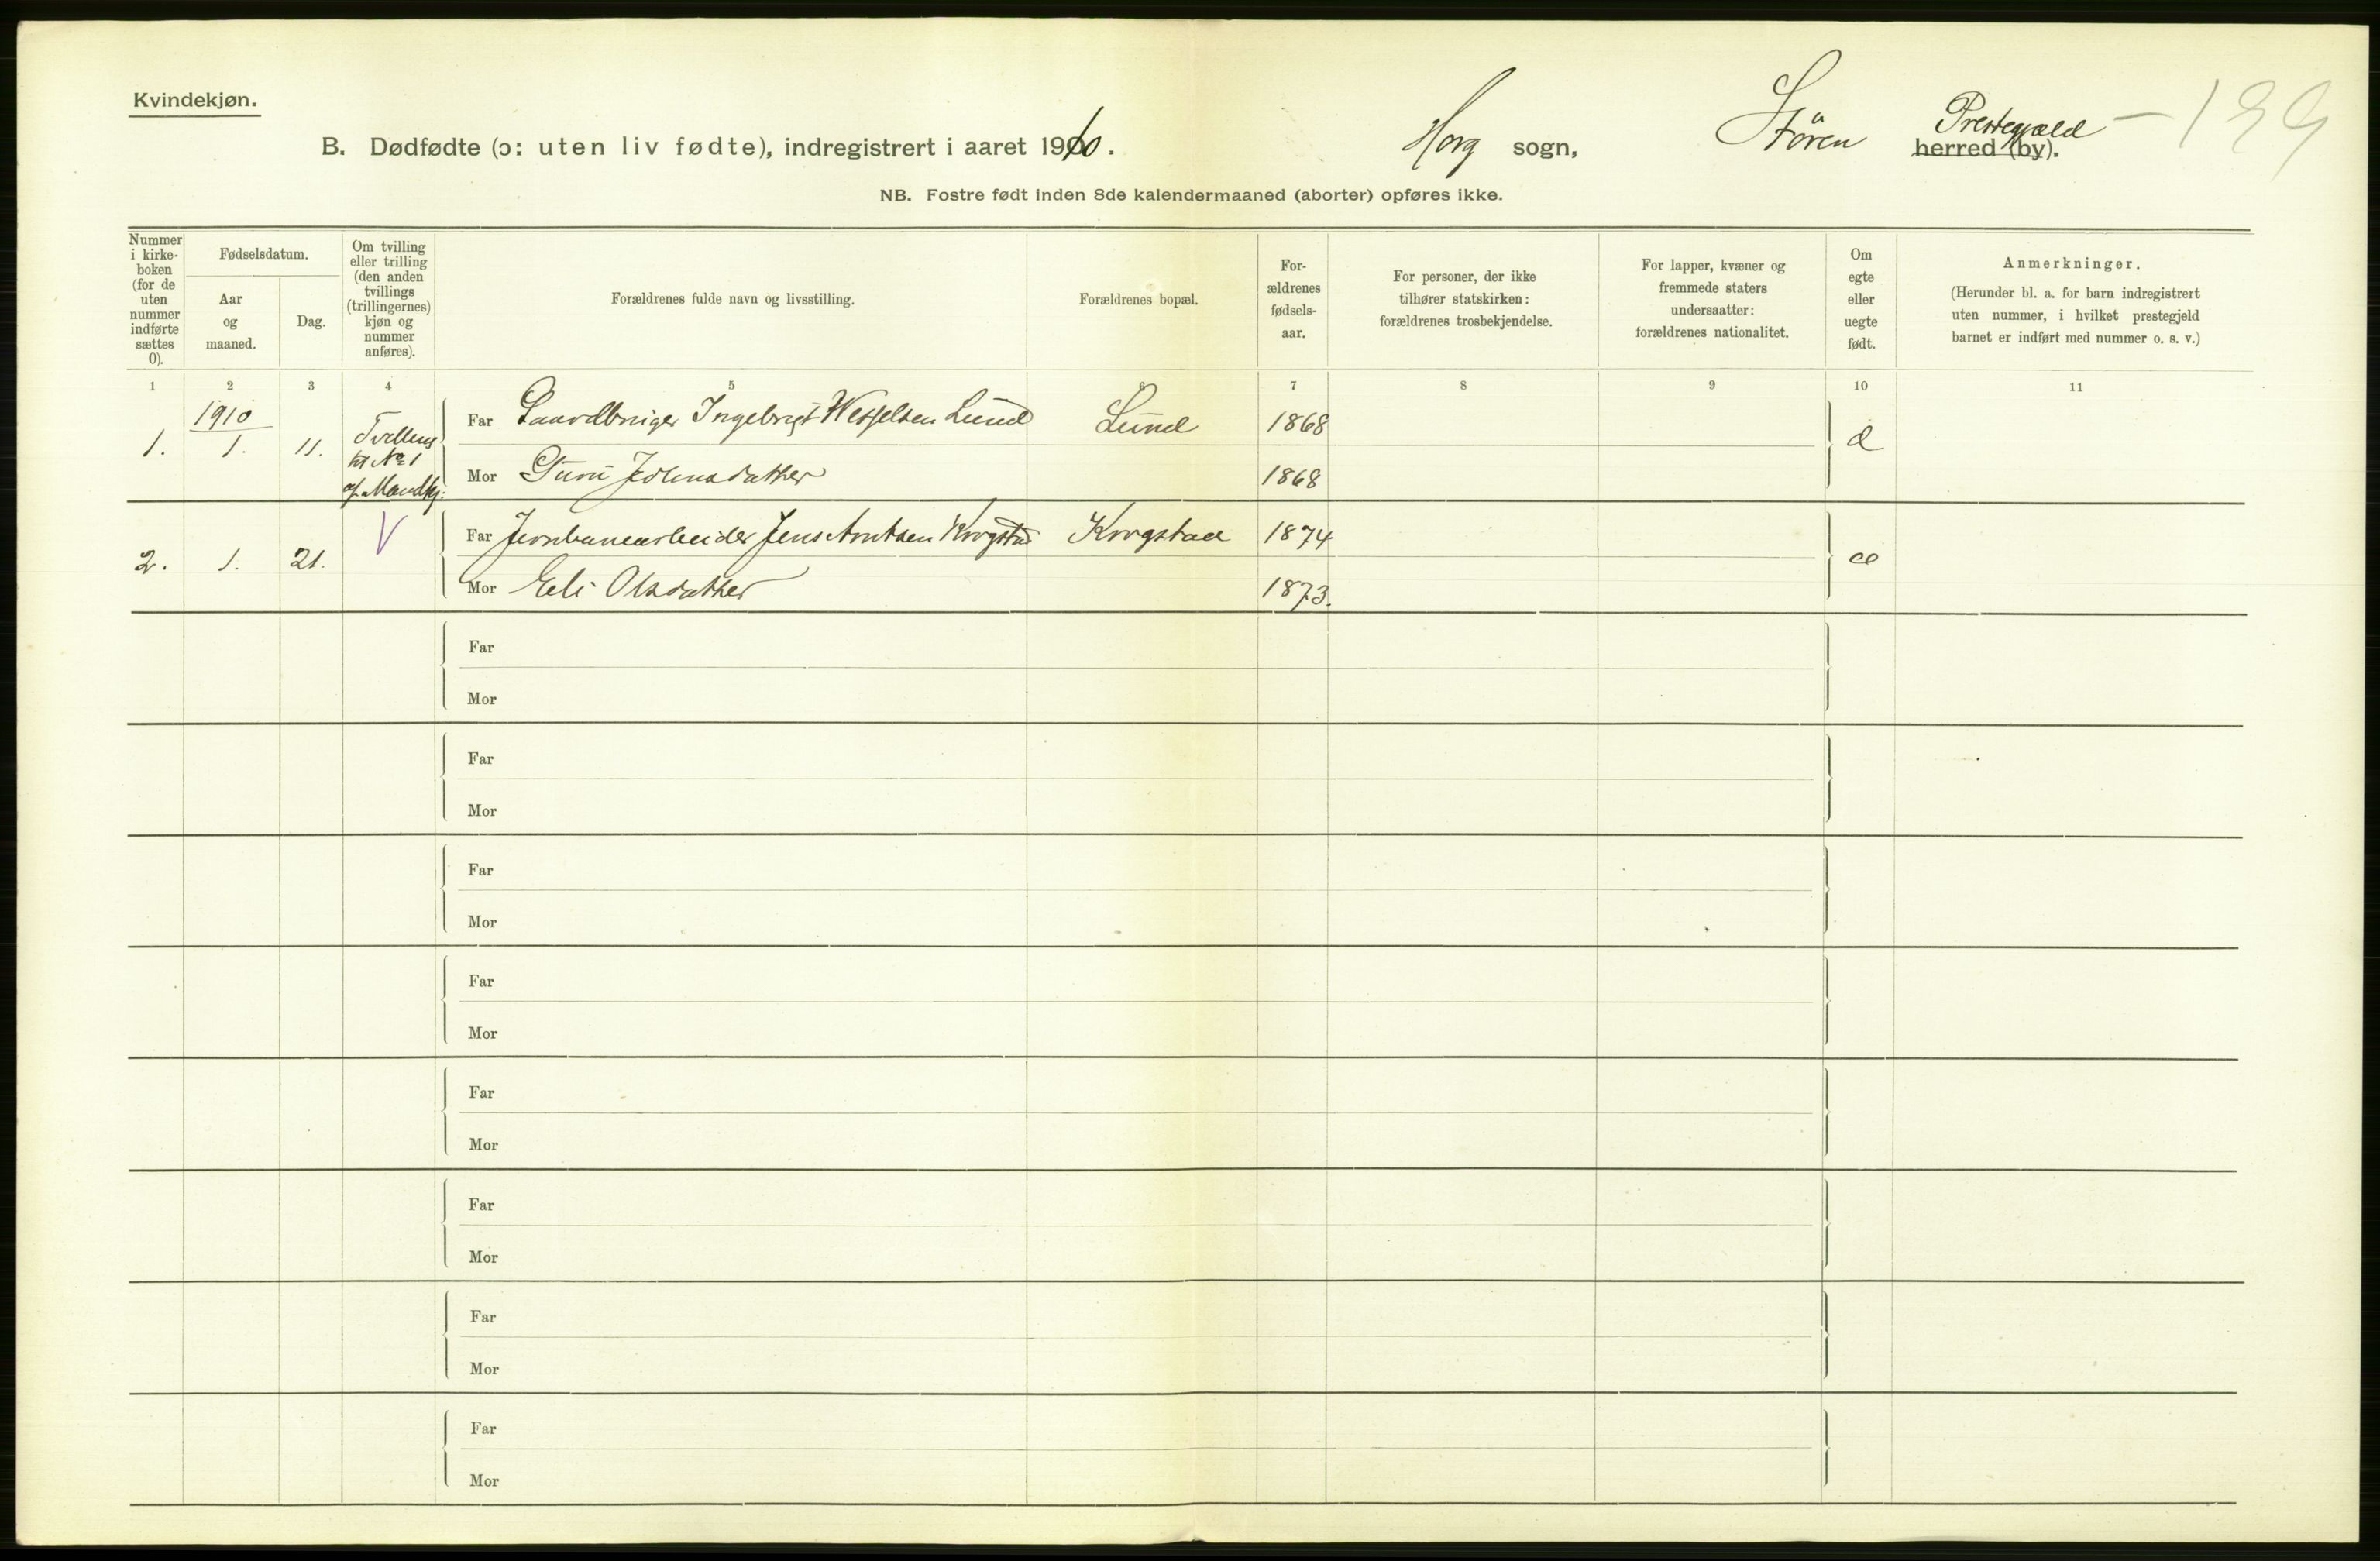 Kvindekjøn.
B. Dødfødte (ɔ: uten liv fødte), indregistrert i aaret 1910.
Horg sogn, Støren Prestegjæld herred (by). 
NB. Fostre født inden 8de kalendermaaned (aborter) opføres ikke.
Nummer i kirke-boken (for de uten nummer indførte sættes 0).
Fødselsdatum.
Aar og maaned.
Dag.
Om tvilling eller trilling (den anden tvillings (trillingernes) kjøn og nummer anføres).
Forældrenes fulde navn og livsstilling.
Forældrenes bopæl.
For-ældrenes fødsels-aar.
For personer, der ikke tilhører statskirken: forældrenes trosbekjendelse.
For lapper, kvæner og fremmede staters undersaatter: forældrenes nationalitet.
Om egte eller uegte født.
Anmerkninger.
(Herunder bl. a. for barn indregistrert uten nummer, i hvilket prestegjeld barnet er indført med nummer o. s. v.)
1 2 3 4 5 6 7 8 9 10 11
1910
1. 1. 11. Tvilling til No 1 af Mandkj: Far Gaardbruger Ingebrigt Wesselsen Lund Lund 1868
Mor Guru Johnsdatter 1868
2. 1. 21. V Far Jernbanearbeider Jens Arntsen Krogstad Krogstad 1874
Mor Eli Olsdatter 1873.
Far
Mor
Far
Mor
Far
Mor
Far
Mor
Far
Mor
Far
Mor
Far
Mor
Far
Mor